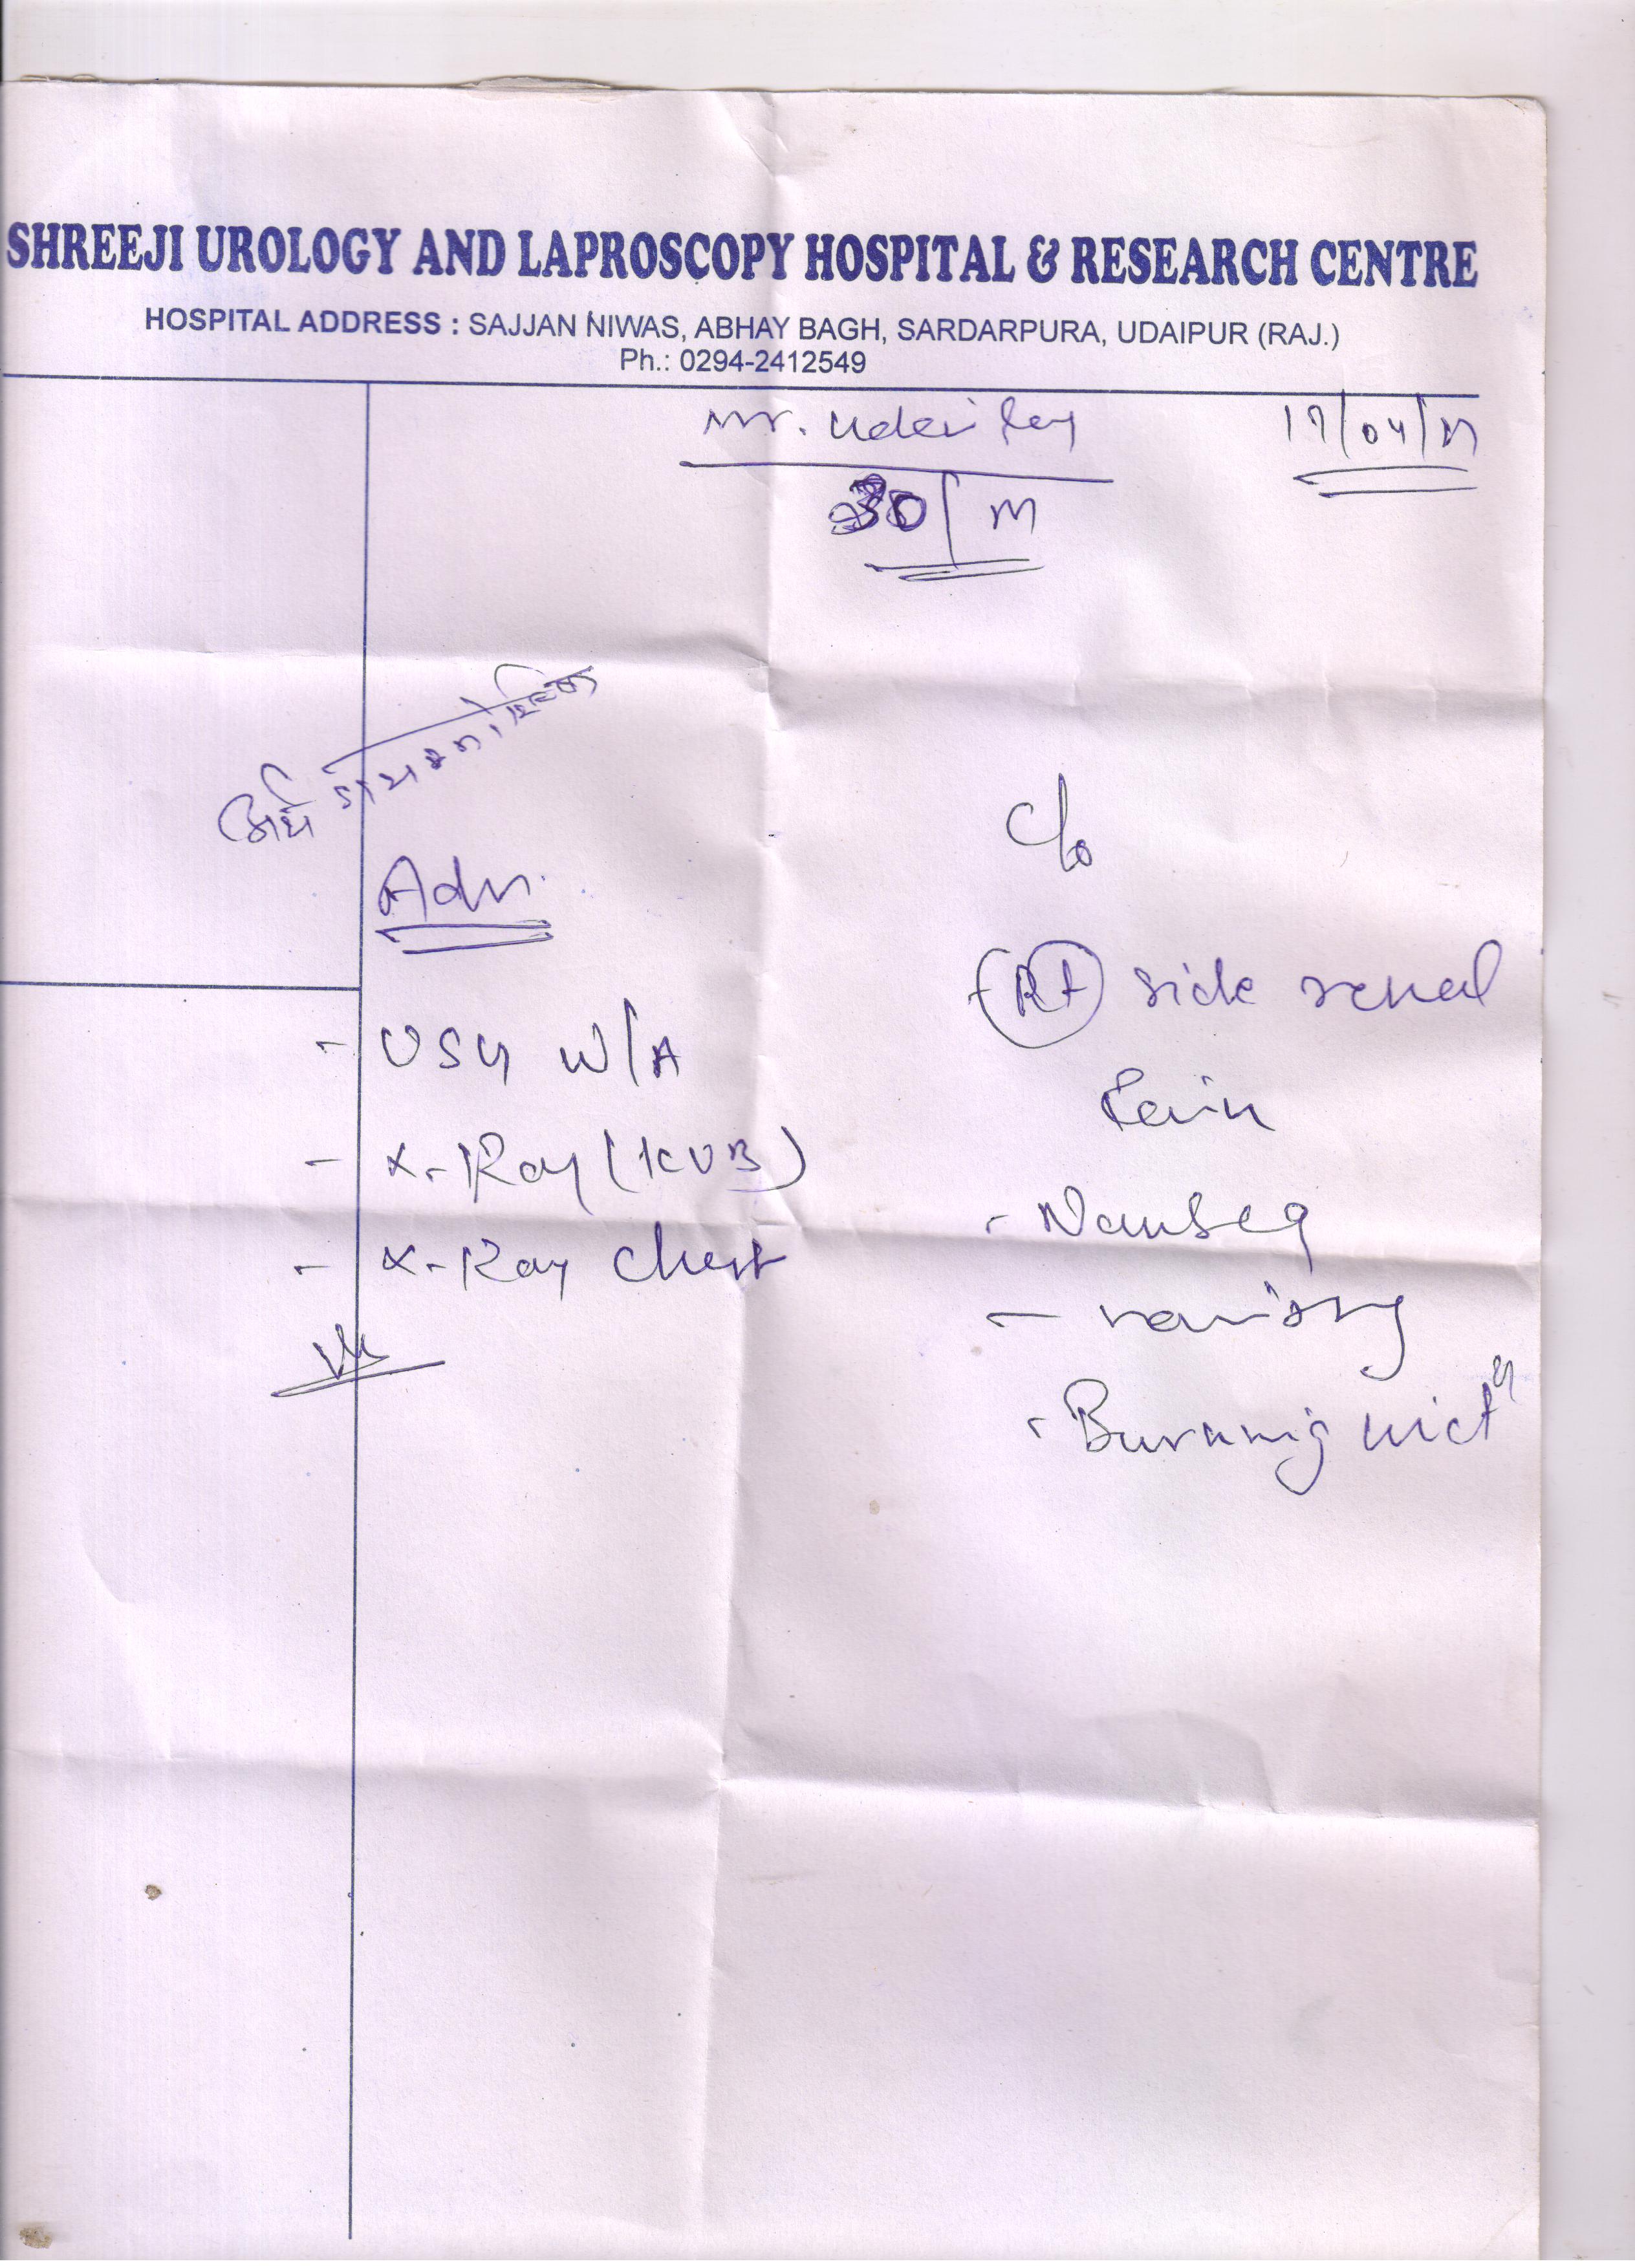 SHREEJI UROLOGY AND LAPROSCOPY HOSPITAL & RESEARCH CENTRE
HOSPITAL ADDRESS : SAJJAN NIWAS, ABHAY BAGH, SARDARPURA, UDAIPUR (RAJ.)
Ph.: 0294-2412549
Mr.
30/M
C/o
Adv.
Rt side renal
Pain
- USG W/A
- X-Ray (KUB)
- Nausea
- X-Ray Chest
- Burning mict